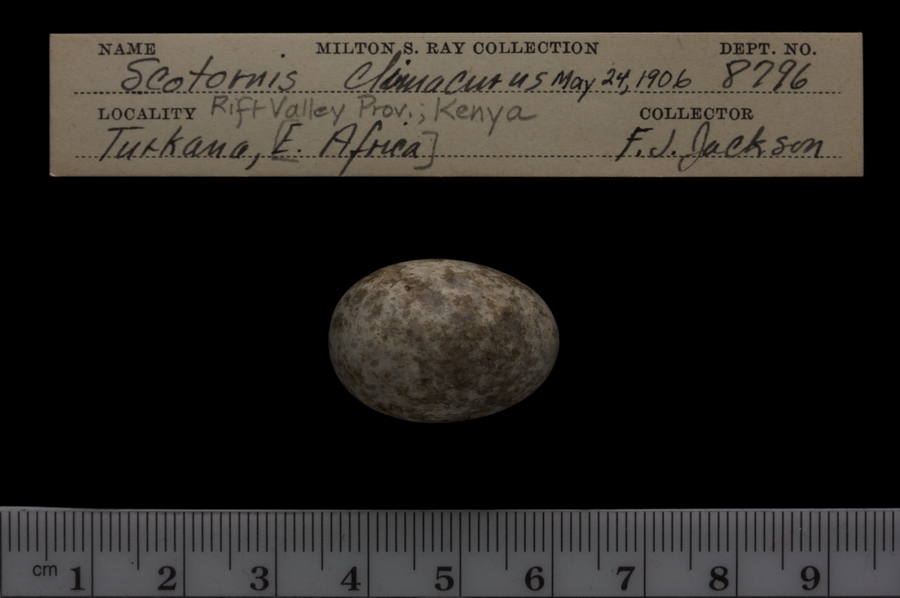 NAME MILTON S. RAY COLLECTION DEPT. NO.
Scotornis climacurus May 24, 1906 8796
LOCALITY Rift Valley Prov.; Kenya COLLECTOR
Turkana, [E. Africa] F. J. Jackson
cm 1 2 3 4 5 6 7 8 9